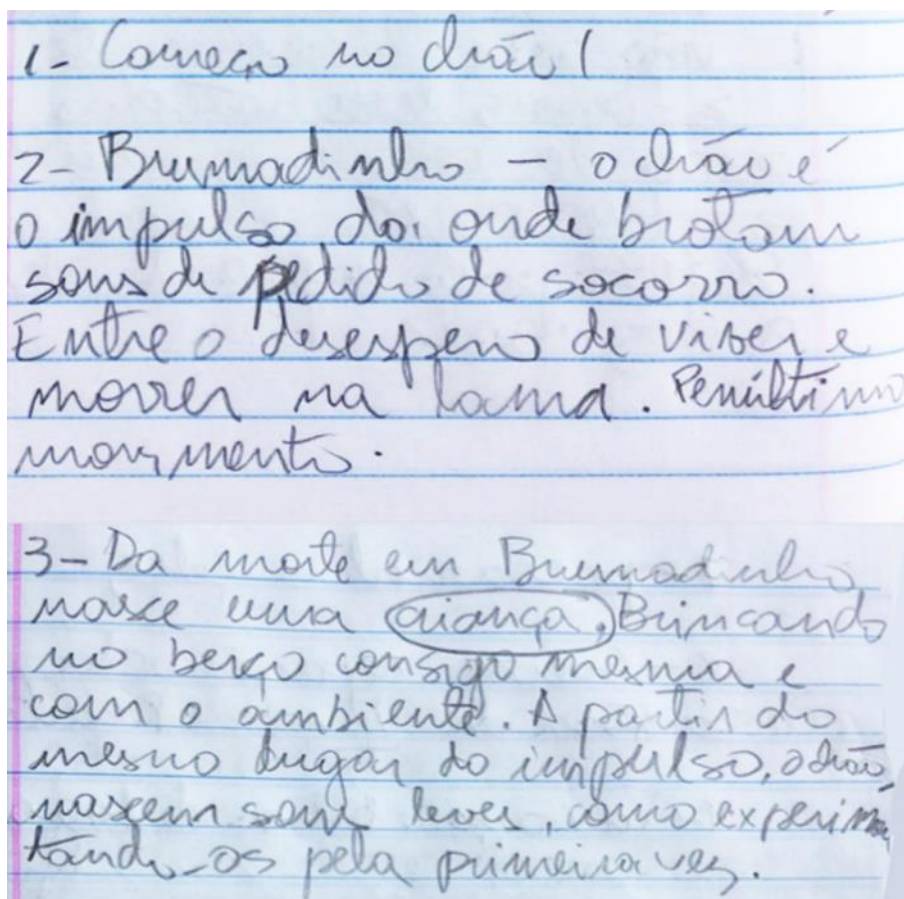 1- Começo no chão!
2- Brumadinho - o chão é
o impulso da onde brotam
sons de pedido de socorro.
Entre o desespero de viver e
morrer na lama. Penúltimo
movimento.
3- Da morte em Brumadinho
nasce uma criança. Brincando
no berço consigo mesma e
com o ambiente. A partir do
mesmo lugar do impulso, o chão
nascem sons leves, como experimen
tando-os pela primeira vez.